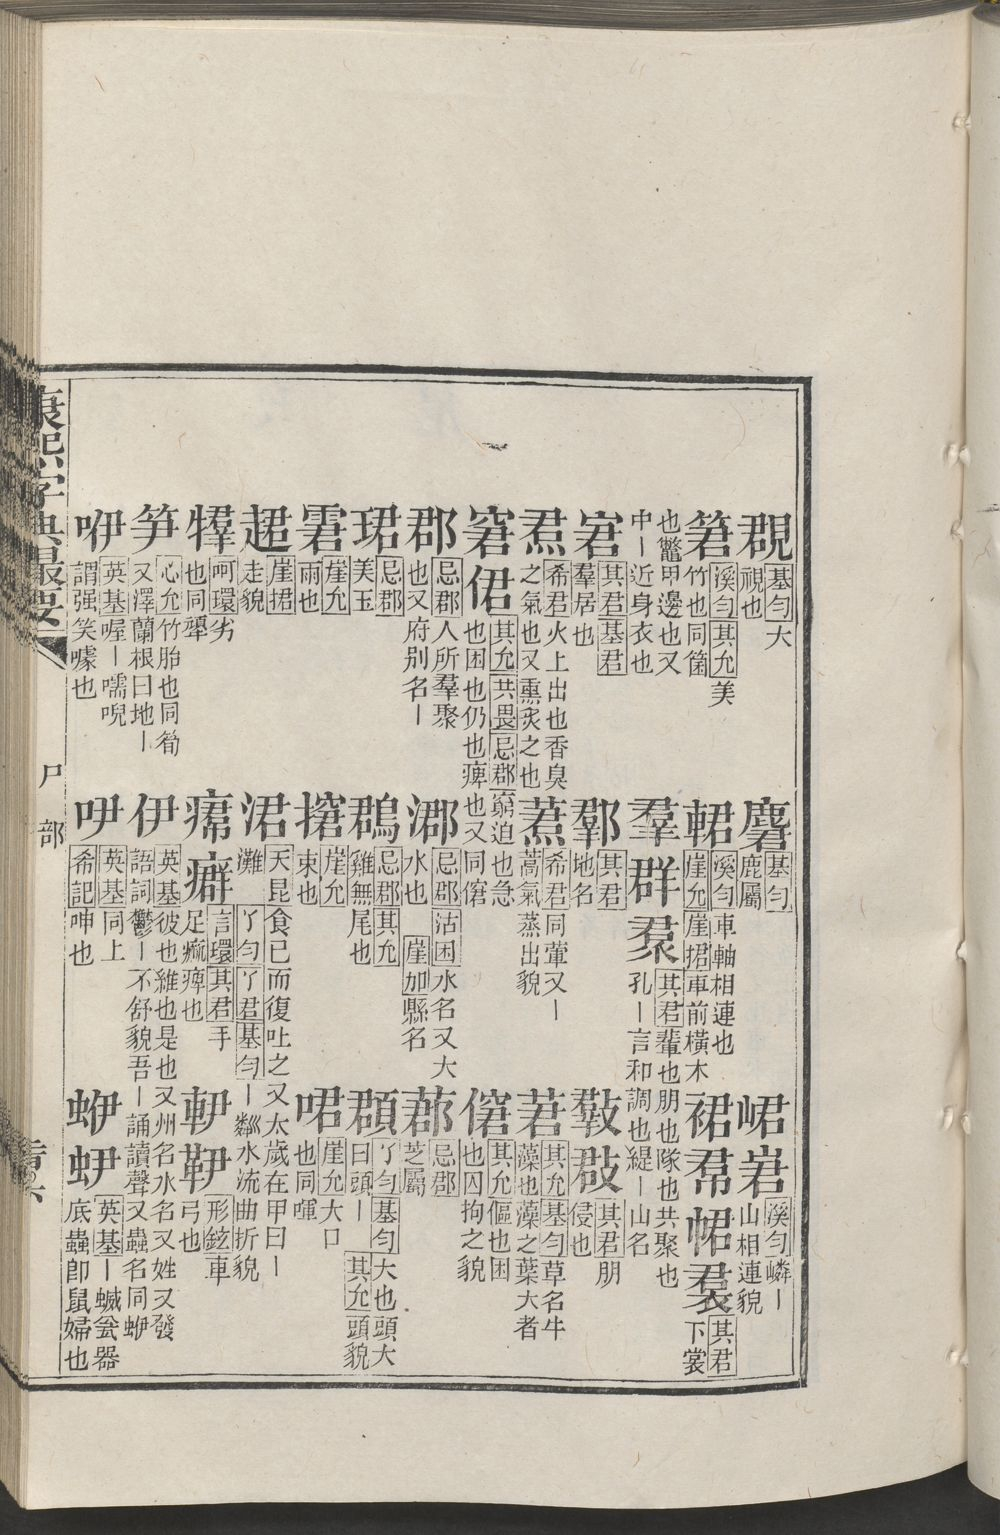 覠 基勻 大視也
麏 基勻 鹿屬
峮 峮 溪勻 嶙丨山相連貌
箬 溪勻 其允 美竹也同箘
輑 溪勻 崖允 崖捃 車軸相連也車前橫木
裙 帬 㡓 裠 其君 下裳
也鼈甲邊也又中丨近身衣也
羣 群 宭 其君 輩也朋也隊也共聚也孔丨言和調也緹丨山名
宭 其君 基君 羣居也
鄿 其君 地名
㪊 㪊 其君 朋侵也
焄 希君 火上出也香臭之氣也又熏炙之也
蔒 希君 同葷又丨蒿氣蒸出貌
莙 其允 基勻 草名牛藻也藻之葉大者
窘 僒 其允 共畏 忌郡 窮迫也急也困也仍也痺也又同僒
僒 其允 傴也困也囚拘之貌
郡 忌郡 人所羣聚也又府別名丨
㵀 忌郡 沽困 水名又大水也 崖加 縣名
蔀 忌郡 芝屬
珺 忌郡 美玉
鵘 忌郡 其允 雞無尾也
頵 了勻 基勻 大也頭大曰頭丨 其允 頭貌
霱 崖允 雨也
攈 崖允 束也
㖥 崖允 大口也同㖧
趉 崖捃 走貌
涒 天昆 食已而復吐之又太歲在甲曰丨灘 了勻 了君 基勻 丨粼水流曲折貌
犟 呵環 劣也同犟
㾗 癖 言環 其君 手足痲痺也
𨊻 䩑 形鉉 車弓也
笋 心允 竹胎也同筍又澤蘭根曰地丨
伊 英基 彼也維也是也又州名水名又姓又發語詞鬱丨不舒貌吾丨誦讀聲又蟲名同蛜
咿 英基 喔丨嚅唲謂强笑噱也
吚 英基 同上 希記 呻也
蛜 蛜 英基 丨蝛瓮器底蟲卽鼠婦也
康熙字典撮要
尸部